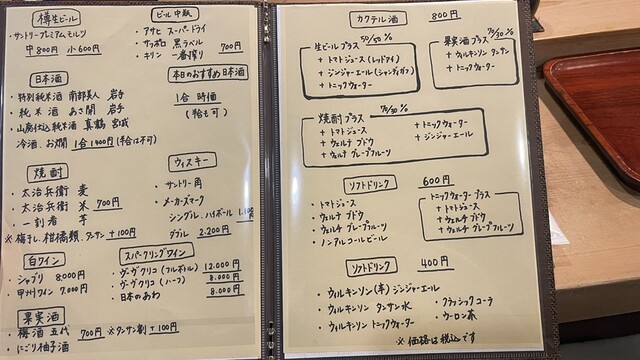 樽生ビール
・サントリープレミアムモルツ
中800円 小600円
ビール中瓶
・アサヒ スーパードライ
・サッポロ 黒ラベル
・キリン 一番搾り 700円
日本酒
・特別純米酒 南部美人 岩手
・純米酒 あさ開 岩手
・山廃仕込純米酒 真鶴 宮城
冷酒、お燗 1合1400円(半合は不可)
本日のおすすめ日本酒
1合 時価
(半合も可)
焼酎
・太治兵衛 麦
・太治兵衛 米 700円
・一刻者 芋
※梅干し、柑橘類、タンサン+100円
ウィスキー
・サントリー角
・メーカーズマーク
シングル、ハイボール 1.100
ダブル 2.200円
白ワイン
・シャブリ 8.000円
・甲州ワイン 7.000円
スパークリングワイン
・ヴーヴクリコ(フルボトル) 12.000円
・ヴーヴクリコ(ハーフ) 8.000円
・日本のあわ 8.000円
果実酒
・梅酒 五代 700円 ※タンサン割+100円
・にごり柚子酒
カクテル酒 800円
生ビールプラス 50/50%
+トマトジュース(レッドアイ)
+ジンジャーエール(シャンディガフ)
+トニックウォーター
果実酒プラス 70/30%
+ウィルキンソン タンサン
+トニックウォーター
焼酎プラス 70/30%
+トマトジュース
+ウェルチ ブドウ
+ウェルチ グレープフルーツ
+トニックウォーター
+ジンジャーエール
ソフトドリンク 600円
・トマトジュース
・ウェルチ ブドウ
・ウェルチ グレープフルーツ
・ノンアルコールビール
トニックウォータープラス
+トマトジュース
+ウェルチ ブドウ
+ウェルチ グレープフルーツ
ソフトドリンク 400円
・ウィルキンソン(辛)ジンジャーエール
・ウィルキンソン タンサン水
・ウィルキンソン トニックウォーター
・クラシックコーラ
・ウーロン茶
※価格は税込です